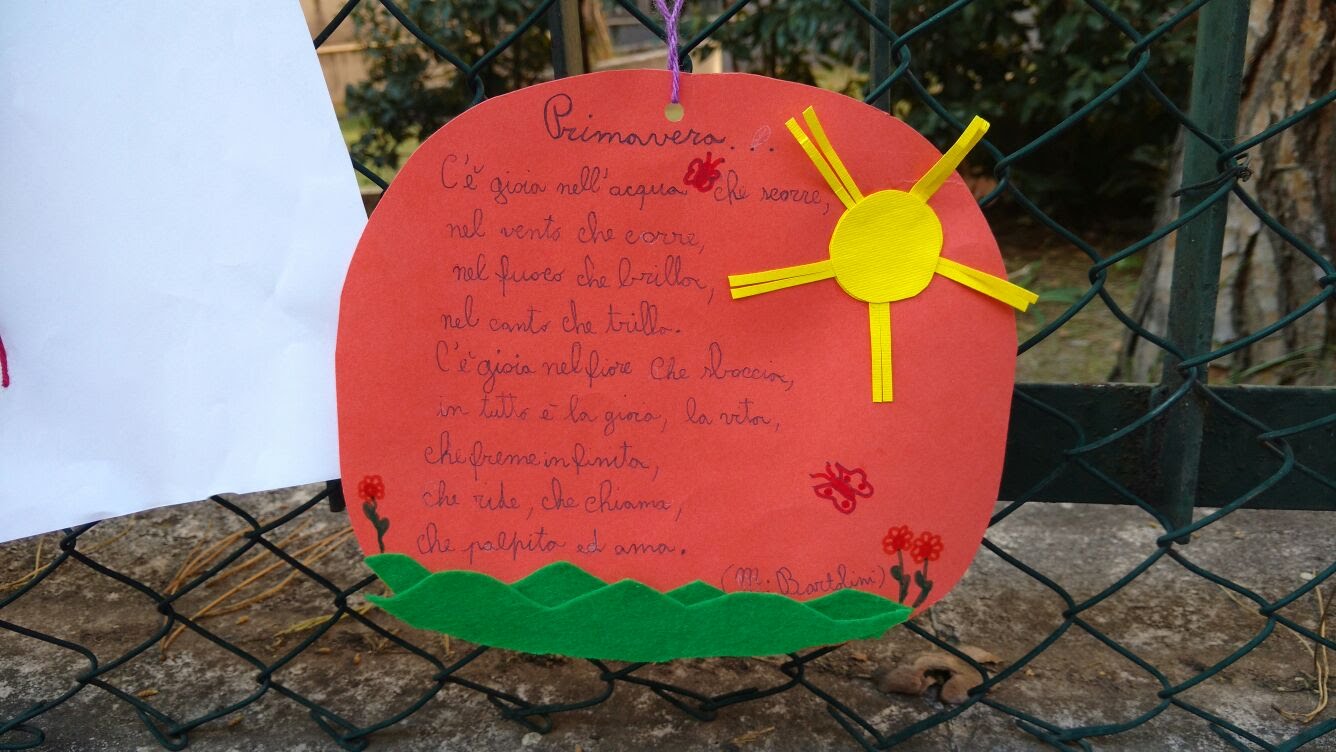 Primavera...
C'è gioia nell'acqua che scorre,
nel vento che corre,
nel fuoco che brilla,
nel canto che trilla.
C'è gioia nel fiore che sboccia,
in tutto è la gioia, la vita,
che freme infinita,
che ride, che chiama,
che palpita ed ama.
(M. Bartolini)